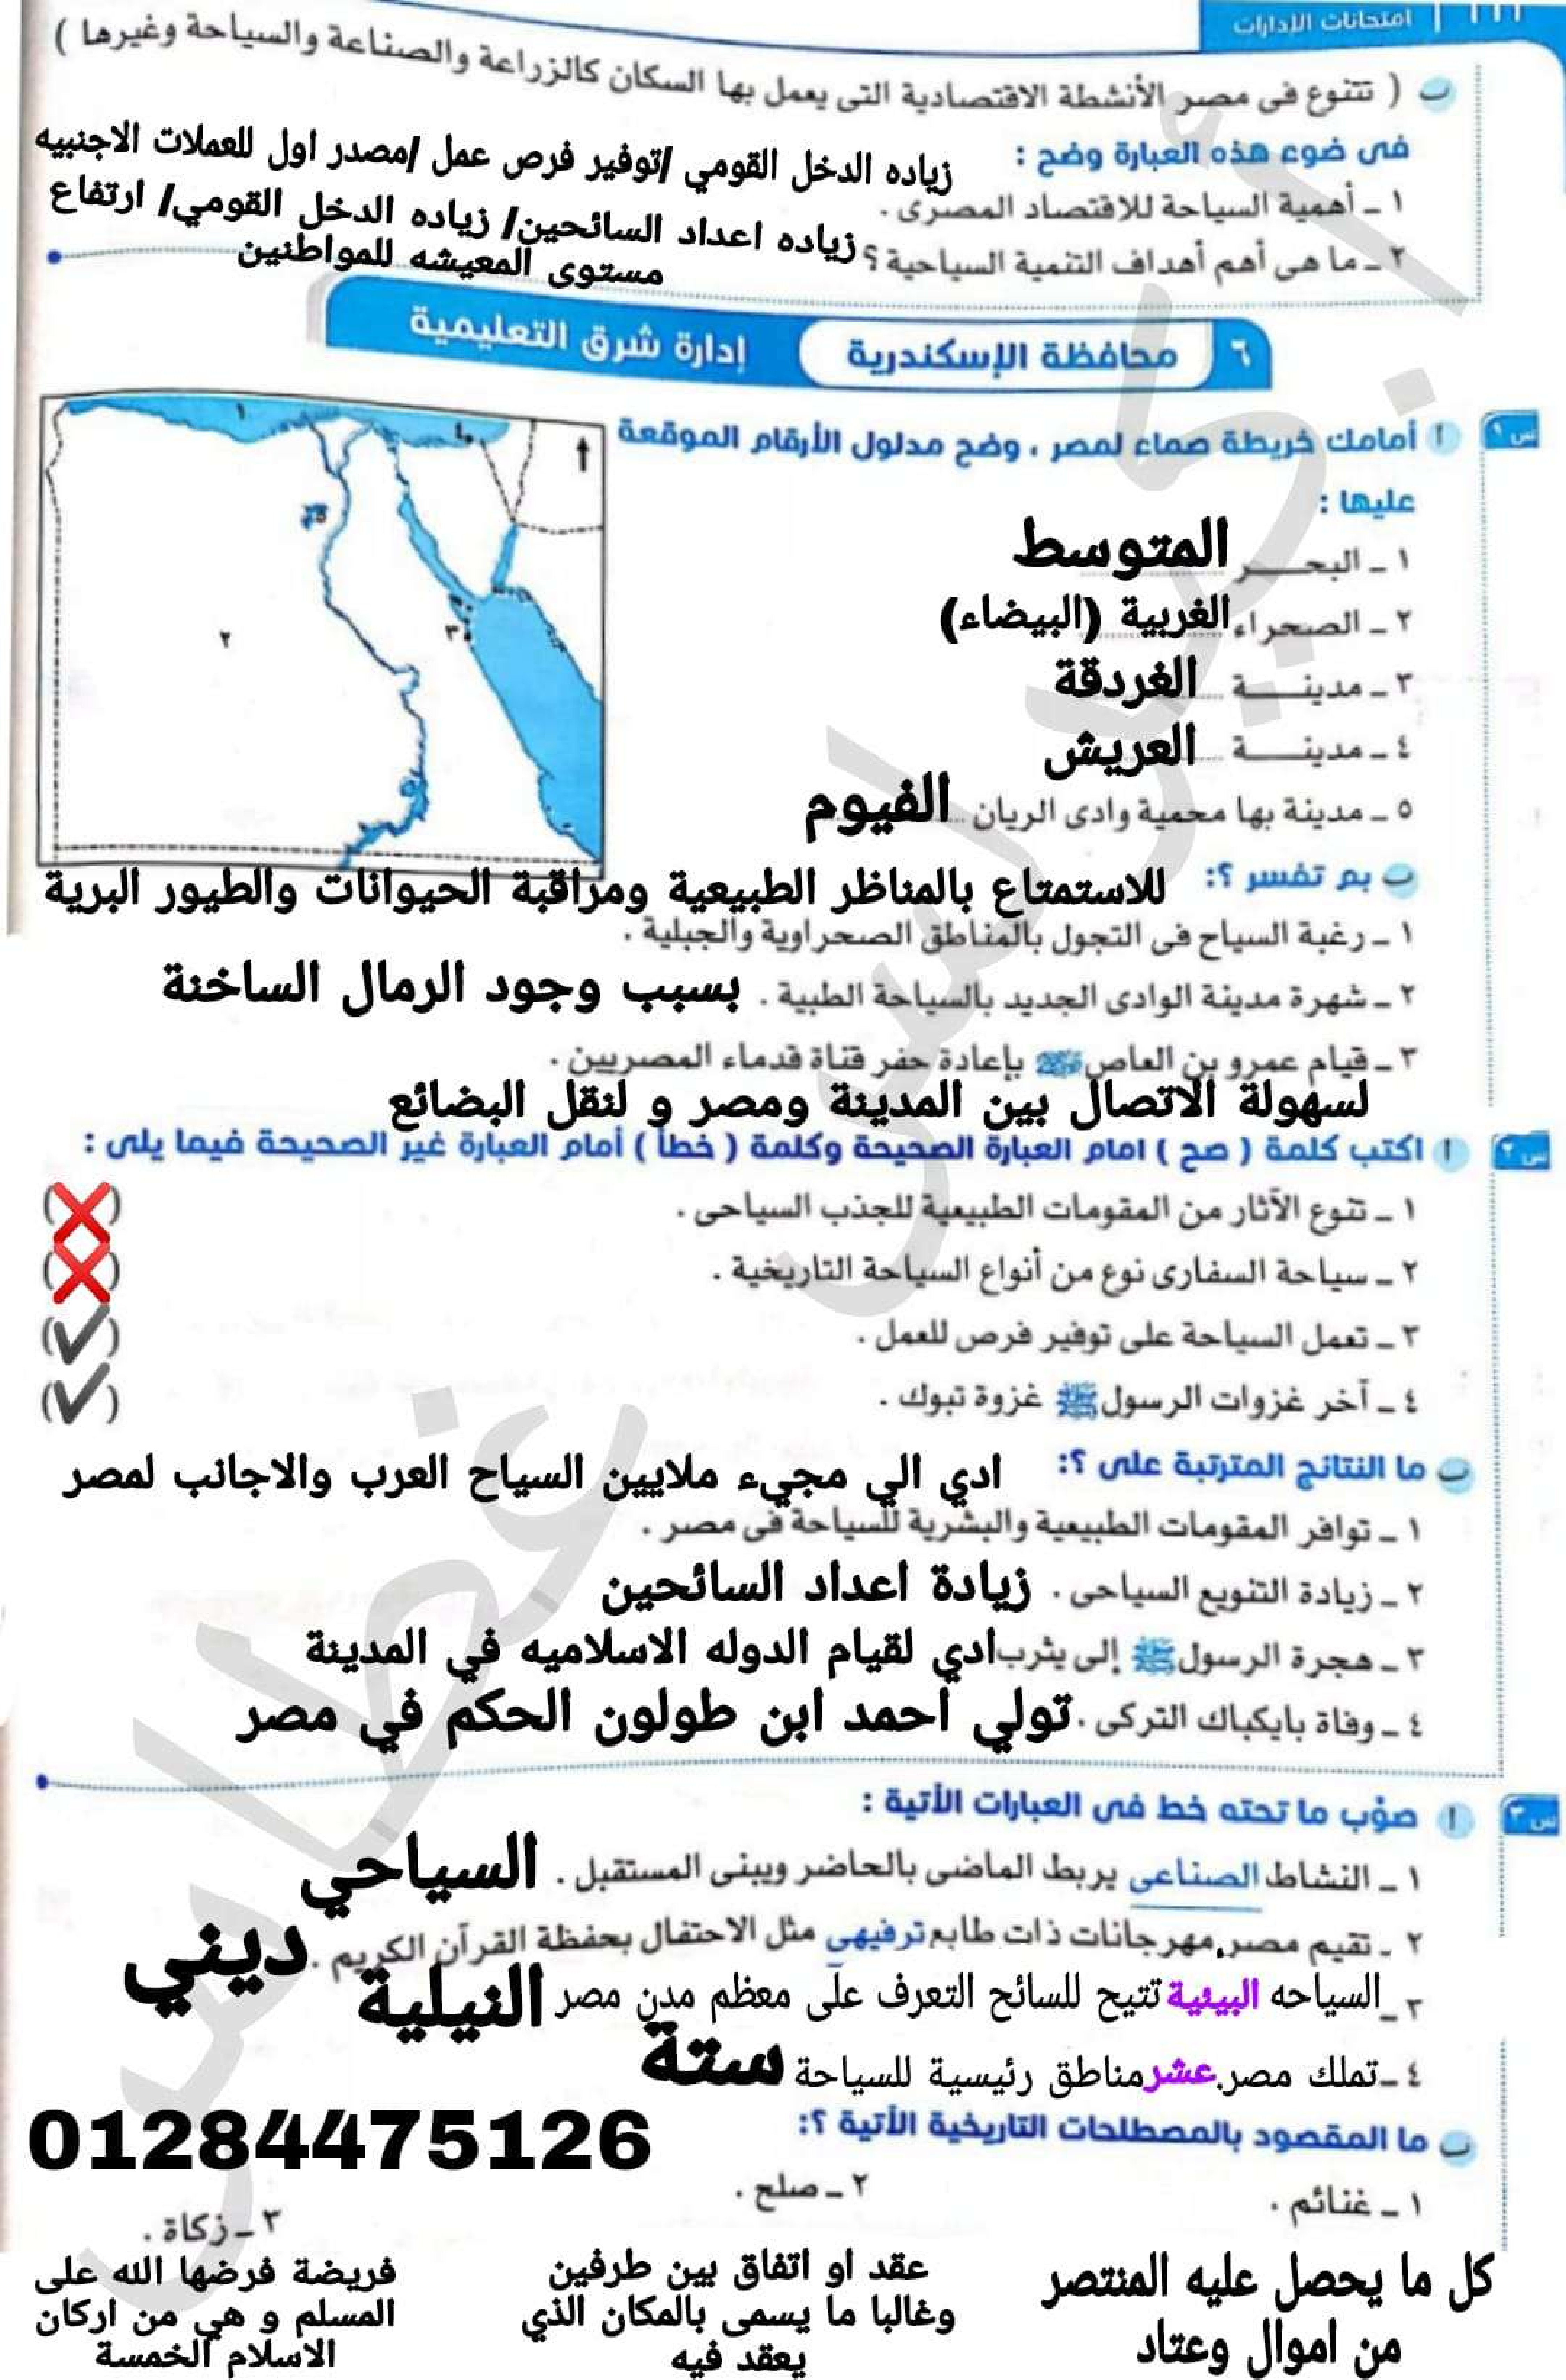 امتحانات الإدارات
ب ( تتنوع فى مصر الأنشطة الاقتصادية التى يعمل بها السكان كالزراعة والصناعة والسياحة وغيرها )
فى ضوء هذه العبارة وضح :
زياده الدخل القومي /توفير فرص عمل /مصدر اول للعملات الاجنبيه
١ ـ أهمية السياحة للاقتصاد المصرى .
زياده اعداد السائحين/ زياده الدخل القومي/ ارتفاع
٢ ـ ما هى أهم أهداف التنمية السياحية ؟
مستوى المعيشه للمواطنين
٦ محافظة الإسكندرية إدارة شرق التعليمية
س١ ا أمامك خريطة صماء لمصر ، وضح مدلول الأرقام الموقعة
عليها :
١ ـ البحـــر المتوسط
٢ ـ الصحراء الغربية (البيضاء)
٣ ـ مدينـــة الغردقة
٤ ـ مدينـــة العريش
٥ ـ مدينة بها محمية وادى الريان الفيوم
١
٤
٥
٢
٣
ب بم تفسر ؟: للاستمتاع بالمناظر الطبيعية ومراقبة الحيوانات والطيور البرية
١ ـ رغبة السياح فى التجول بالمناطق الصحراوية والجبلية .
٢ ـ شهرة مدينة الوادى الجديد بالسياحة الطبية . بسبب وجود الرمال الساخنة
٣ ـ قيام عمرو بن العاص بإعادة حفر قناة قدماء المصريين .
لسهولة الاتصال بين المدينة ومصر و لنقل البضائع
س٢ ا اكتب كلمة ( صح ) امام العبارة الصحيحة وكلمة ( خطأ ) أمام العبارة غير الصحيحة فيما يلى :
١ ـ تنوع الآثار من المقومات الطبيعية للجذب السياحى . (❌)
٢ ـ سياحة السفارى نوع من أنواع السياحة التاريخية . (❌)
٣ ـ تعمل السياحة على توفير فرص للعمل . (✔)
٤ ـ آخر غزوات الرسول ﷺ غزوة تبوك . (✔)
ب ما النتائج المترتبة على ؟: ادي الي مجيء ملايين السياح العرب والاجانب لمصر
١ ـ توافر المقومات الطبيعية والبشرية للسياحة فى مصر .
٢ ـ زيادة التنويع السياحى . زيادة اعداد السائحين
٣ ـ هجرة الرسول ﷺ إلى يثرب ادي لقيام الدوله الاسلاميه في المدينة
٤ ـ وفاة بايكباك التركى . تولي احمد ابن طولون الحكم في مصر
س٣ ا صوّب ما تحته خط فى العبارات الأتية :
١ ـ النشاط الصناعى يربط الماضى بالحاضر ويبنى المستقبل . السياحي
٢ ـ تقيم مصر مهرجانات ذات طابع ترفيهى مثل الاحتفال بحفظة القرآن الكريم . ديني
٣ ـ السياحه البيئية تتيح للسائح التعرف على معظم مدن مصر النيلية
٤ ـ تملك مصر عشر مناطق رئيسية للسياحة ستة
ب ما المقصود بالمصطلحات التاريخية الأتية ؟:
01284475126
١ ـ غنائم . ٢ ـ صلح . ٣ ـ زكاة .
كل ما يحصل عليه المنتصر
من اموال وعتاد
عقد او اتفاق بين طرفين
وغالبا ما يسمى بالمكان الذي
يعقد فيه
فريضة فرضها الله على
المسلم و هي من اركان
الاسلام الخمسة